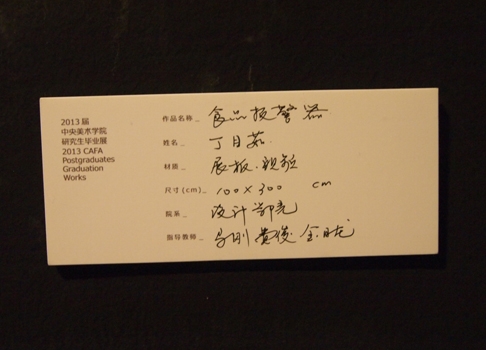 2013届
中央美术学院
研究生毕业展
2013 CAFA
Postgraduates
Graduation
Works
作品名称_ 食品报警器
姓名_ 丁月茹
材质_ 展板.视频
尺寸(cm)_ 100×300 cm
院系_ 设计学院
指导教师_ 马刚 费俊